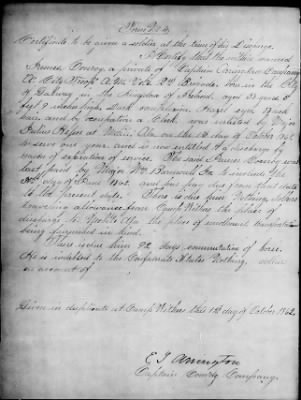 Form No 4.
Certificate to be given a soldier at the time of his Discharge.
I Certify that the within named
James Conroy, a private of Captain
Company
City Troop A. M. Vols. 2d Brigade, born in the City
of Galway in the Kingdom of Ireland, aged 33 years 5
feet 9 inches high, Dark complexion, Hazel eyes, Black
hair, and by occupation a Clerk, was enlisted by
Julius Hessee at Mobile, Ala on the 1st day of October 1861
to serve one year, and is now entitled to a discharge by
reason of expiration of service. The said James Conroy was
last paid by Major Wm Barnewall Jr to include the
30th day of June 1862, and has pay due from that date
to the present date. There is due him Nothing Dollars
traveling allowance from Camp Withers the place of
discharge to Mobile Ala the place of enrollment transportation
being furnished in kind.
There is due him 92 days commutation of horse.
He is indebted to the Confederate States Nothing,
on account of
Given in duplicate at Camp Withers this 1st day of October 1862.
E. T. Arrington
Captain Comdg Company.